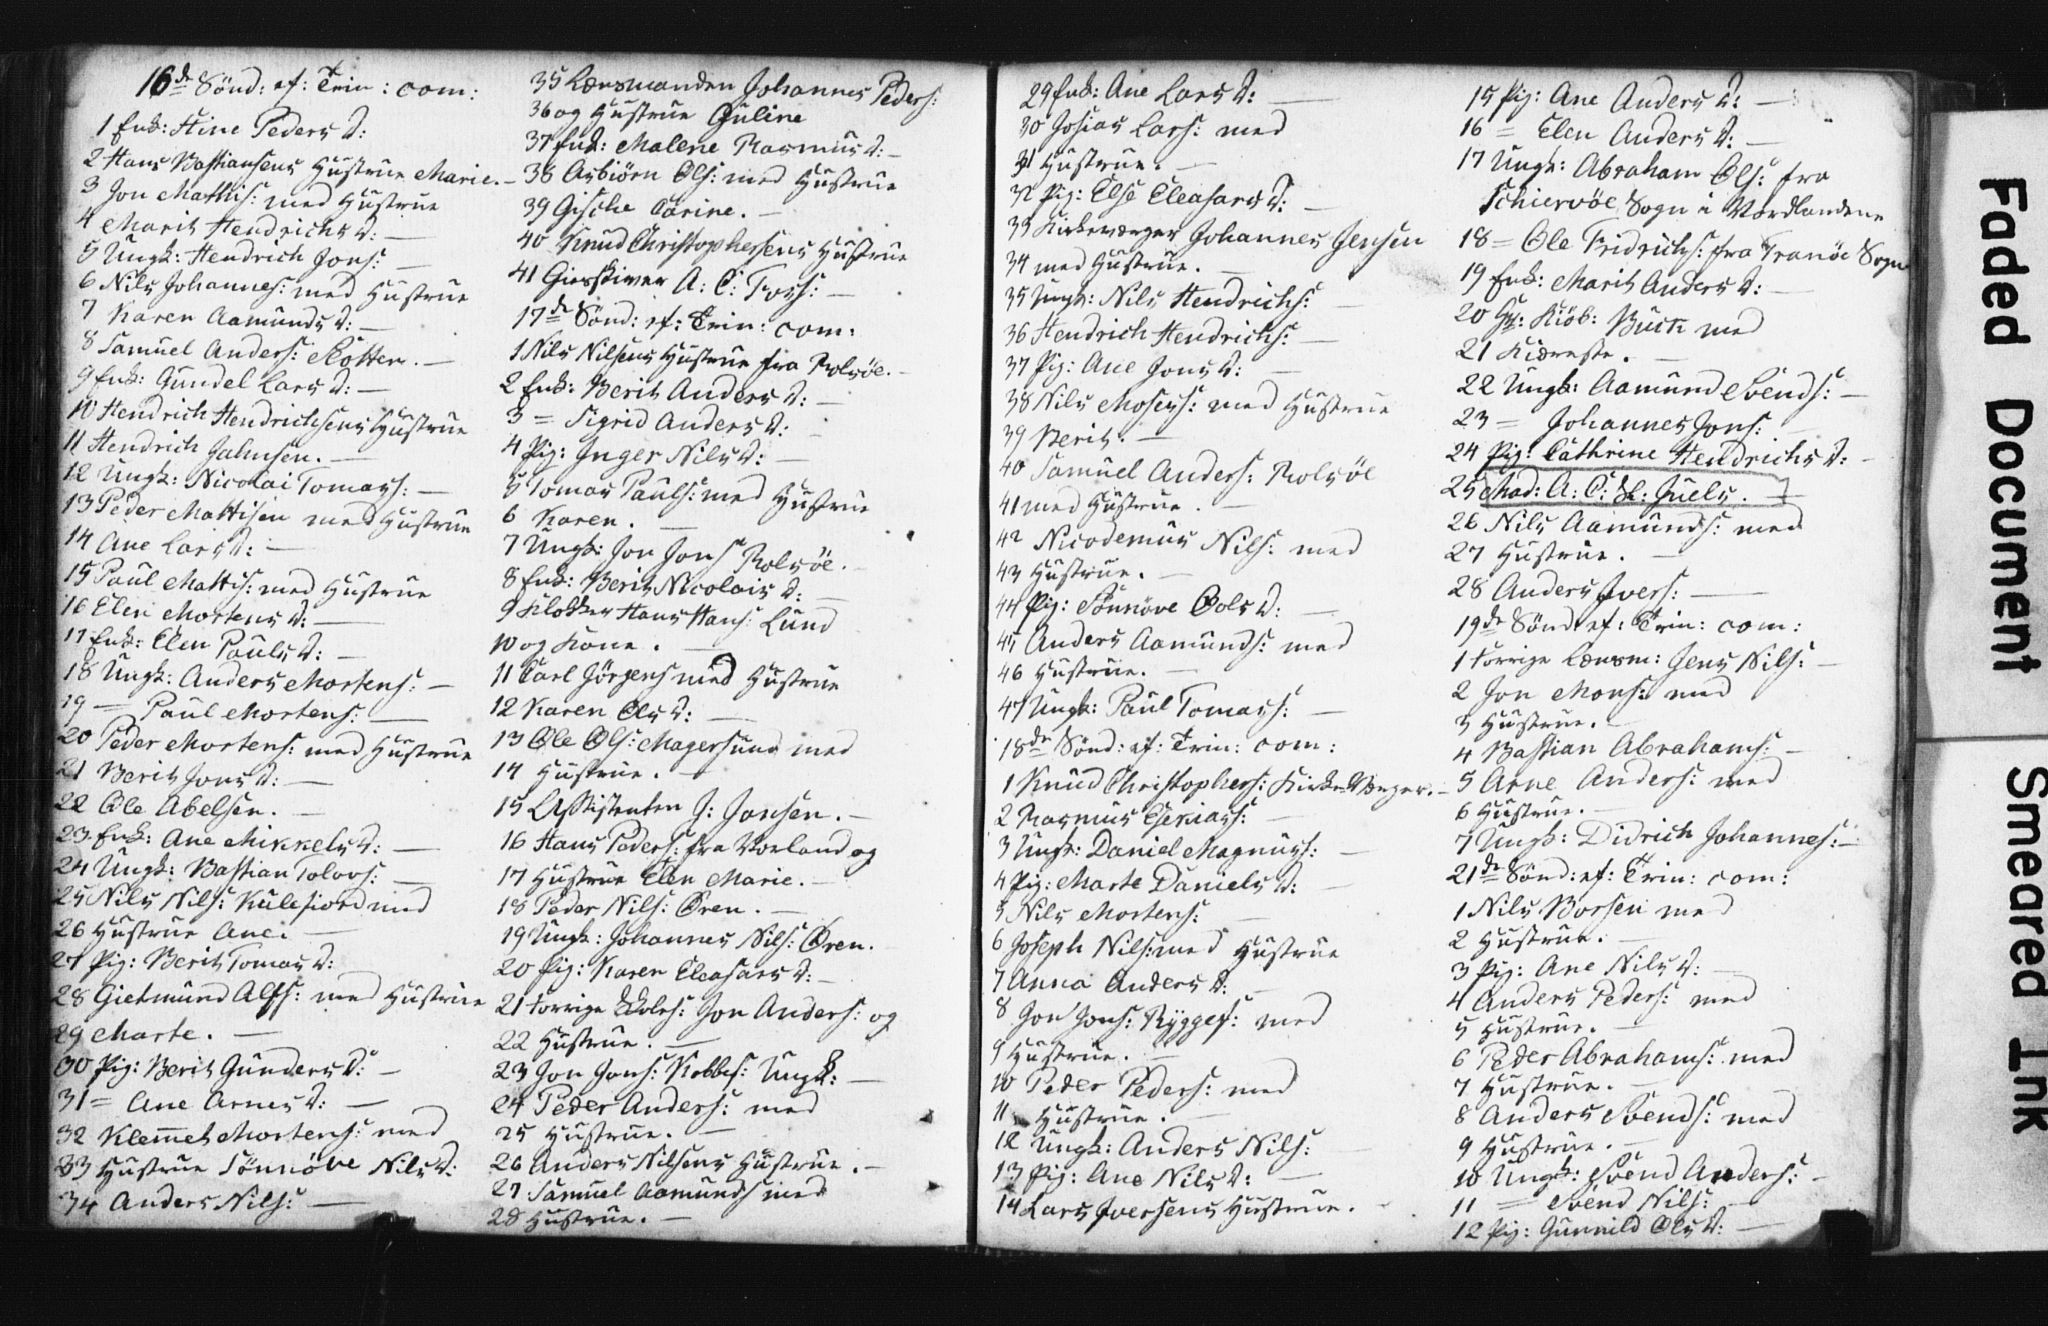 16de Sönd: ef: Trin: com:
1 Enk: Stine Peders D:
2 Hans Bastiansens Hustrue Marie.
3 Jon Mathis: med Hustrue
4 Marit Hendrichs D:
5 Ungk: Hendrich Jons:
6 Nils Johannes: med Hustrue
7 Karen Aamunds D:
8 Samuel Anders: Skotten.
9 Enk: Gundel Lars D:
10 Hendrich Hendrichsens Hustrue
11 Hendrich Jahnsen.
12 Ungk: Nicolai Tomas s:
13 Peder Mattisen med Hustrue
14 Ane Lars D:
15 Paul Mattis: med Hustrue
16 Elen Mortens D:
17 Enk: Elen Pauls D:
18 Ungk: Anders Mortens:
19 — Paul Mortens:
20 Peder Mortens: med Hustrue
21 Berit Jons D:
22 Ole Abelsen.
23 Enk: Ane Mikkels D:
24 Ungk: Bastian Tolovs:
25 Nils Nils: Kulefiord med
26 Hustrue Ane:
27 Pig: Berit Tomas D:
28 Gietmund Alfs: med Hustrue
29 Marte.
30 Pig: Berit Gunders D:
31 = Ane Arnes D:
32 Klemmet Mortens: med
33 Hustrue Sönnöve Nils D:
34 Anders Nils:
35 Lænsmanden Johannes Peders:
36 og Hustrue Guline
37 Enk: Malene Rasmus D:
38 Asbiörn Ols: med Hustrue
39 Gische Carine.
40 Knud Christophersens Hustrue
41 Giæstgiver A: C: Foss:
17de Sönd: ef: Trin: com:
1 Nils Nilsens Hustrue fra Rolvsöe.
2 Enk: Berit Anders D:
3 = Sigrid Anders D:
4 Pig: Inger Nils D:
5 Tomas Pauls: med Hustrue
6 Karen.
7 Ungk: Jon Jons Rolvsöe.
8 Enk: Berit Nicolais D:
9 Klokker Hans Hans: Lund
10 og Kone.
11 Carl Jörgens med Hustrue
12 Karen Ols D:
13 Ole Ols: Magersund med
14 Hustrue.
15 Assistenten J: Jonsen.
16 Hans Peders: fra Vorland og
17 Hustrue Elen Marie.
18 Peder Nils: Ören.
19 Ungk: Johannes Nils: Ören.
20 Pig: Karen Eleasars D:
21 forrige Skoleh: Jon Anders: og
22 Hustrue.
23 Jon Jons: Kobbef: Ungk:
24 Peder Anders: med
25 Hustrue.
26 Anders Nilsens Hustrue.
27 Samuel Aamunds med
28 Hustrue.
29 Enk: Ane Lars D:
30 Josias Lars: med
31 Hustrue.
32 Pig: Else Eleasars D:
33 Kirkeværger Johannes Jensen
34 med Hustrue.
35 Ungk: Nils Hendrichs:
36 Hendrich Hendrichs:
37 Pig: Ane Jons D:
38 Nils Moses s: med Hustrue
39 Berit.
40 Samuel Anders: Rolvsöe
41 med Hustrue.
42 Nicodemus Nils: med
43 Hustrue.
44 Pig: Sönnöve Ools D:
45 Anders Aamunds: med
46 Hustrue.
47 Ungk: Paul Tomas s:
18de Sönd: ef: Trin: com:
1 Knud Christophers: Kirke Værger.
2 Rasmus Esekias s:
3 Ungk: Daniel Magnus s:
4 Pig: Marte Daniels D:
5 Nils Mortens:
6 Joseph Nils: med Hustrue
7 Anna Anders D:
8 Jon Jons: Ryggef: med
9 Hustrue.
10 Peder Peders: med
11 Hustrue.
12 Ungk: Anders Nils:
13 Pig: Ane Nils D:
14 Lars Iversens Hustrue.
15 Pig: Ane Anders D:
16 = Elen Anders D:
17 Ungk: Abraham Ols: fra
Schiervöe Sogn i Nordlandene
18 = Ole Fridrichs: fra Tranöe Sogn
19 Enk: Marit Anders D:
20 Hr: Kiöb: Buck med
21 Kiæreste.
22 Ungk: Aamund Svends:
23 = Johannes Jons:
24 Pig: Cathrine Hendrichs D:
25 Mad: A: C: Sl: Juels.
26 Nils Aamunds: med
27 Hustrue.
28 Anders Ivers:
19de Sönd: ef: Trin: com:
1 forrige Lænsm: Jens Nils:
2 Jon Mons: med
3 Hustrue.
4 Bastian Abrahams:
5 Arne Anders: med
6 Hustrue.
7 Ungk: Didrich Johannes:
21de Sönd: ef: Trin: com:
1 Nils Borsen med
2 Hustrue.
3 Pig: Ane Nils D:
4 Anders Peders: med
5 Hustrue.
6 Peder Abrahams: med
7 Hustrue.
8 Anders Svends: med
9 Hustrue.
10 Ungk: Svend Anders:
11 = Svend Nils:
12 Pig: Gunnild Ols D:
Faded Document
Smeared Ink